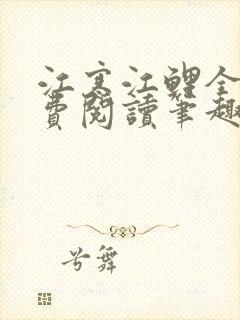 江寒江鲤全
費閱讀筆趣
兮舞